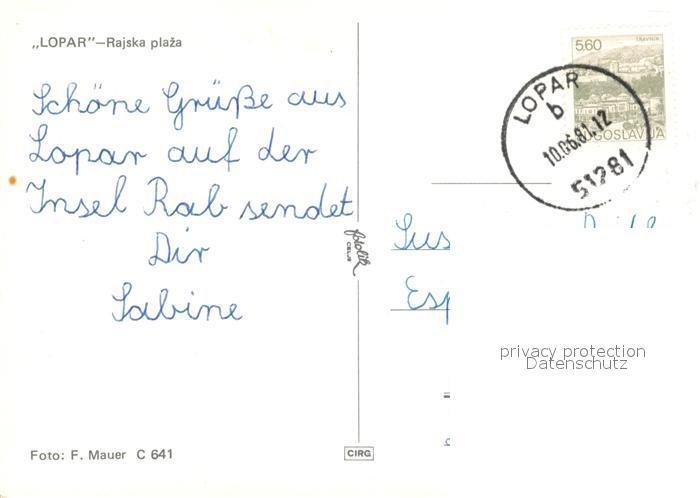 „LOPAR”—Rajska plaža
Schöne Grüße aus
Lopar auf der
Insel Rab sendet
Dir
Sabine
Foto: F. Mauer C 641
fotolik
CELJE
CIRG
TRAVNIK
5.60
JUGOSLAVIJA
LOPAR
b
10.06.81.12
51281
Sus
Esp
privacy protection
Datenschutz